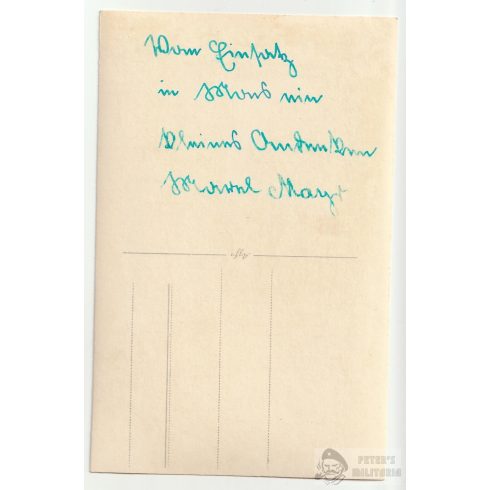 Vom Einsatz
in Mons ein
kleines Andenken
Mayr
PETER'S
MILITARIA